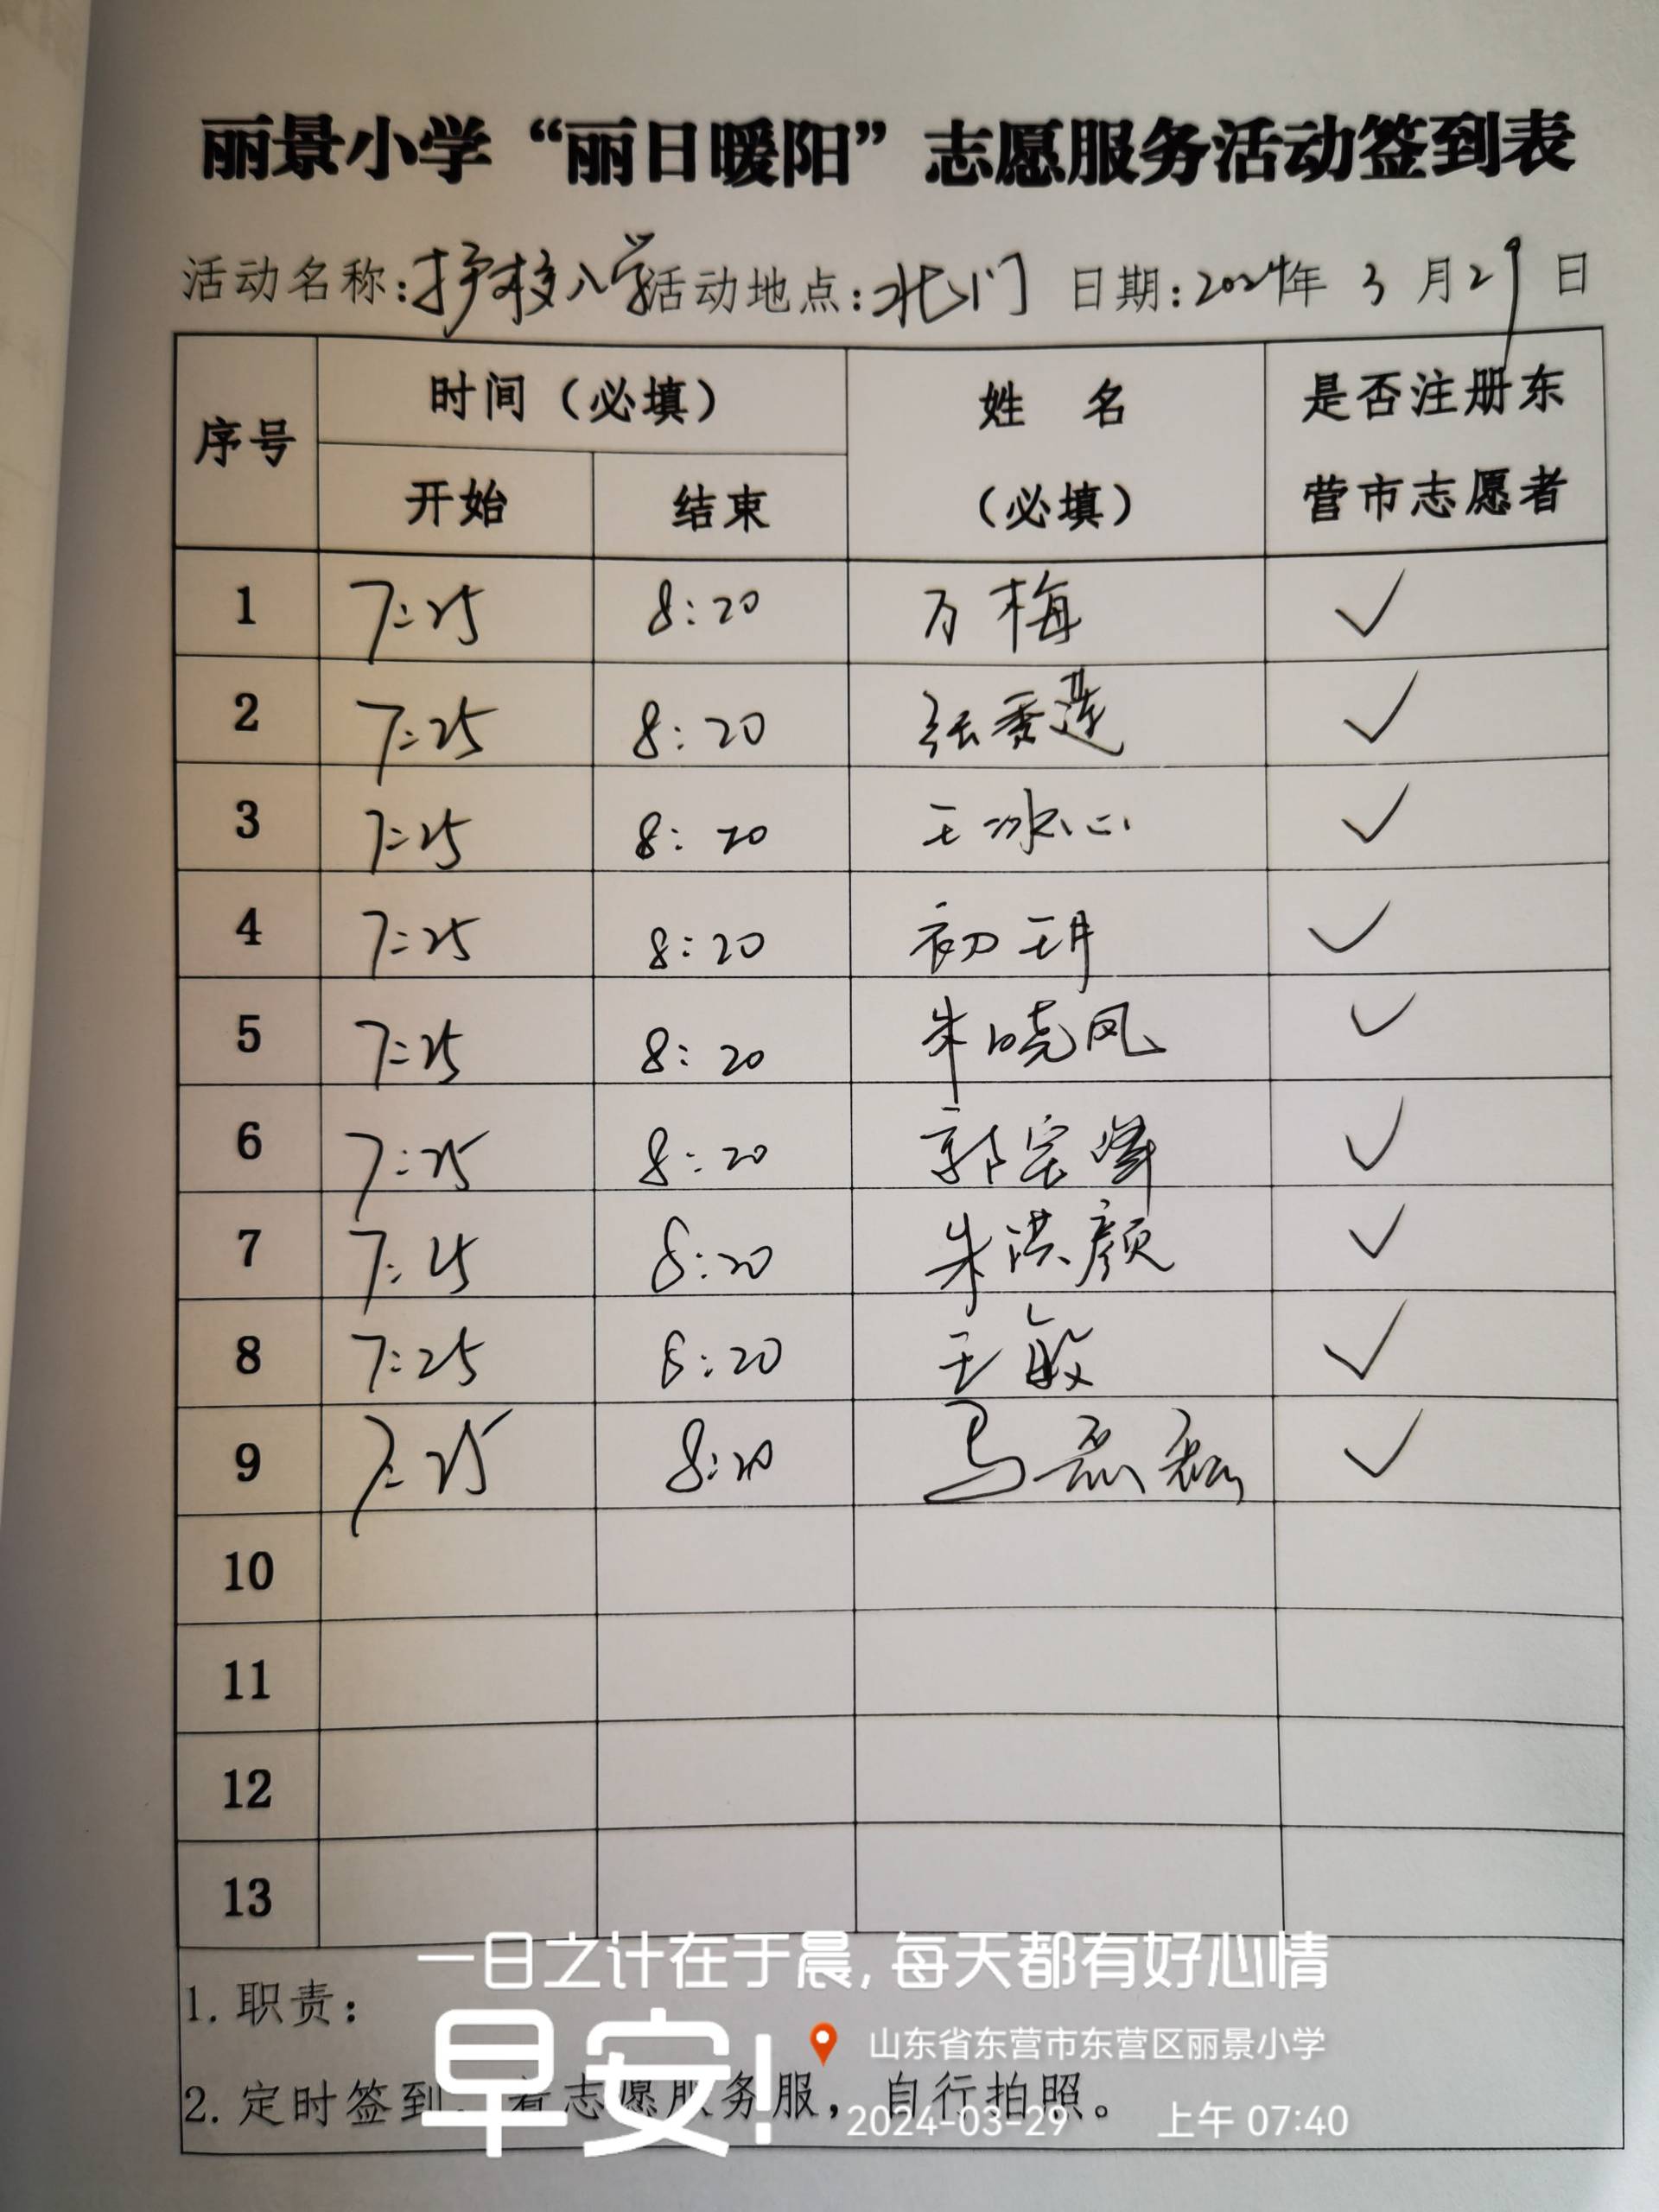 丽景小学“丽日暖阳”志愿服务活动签到表
活动名称:护校入学 活动地点:北门 日期:2024年 3 月29 日
序号 时间（必填） 姓 名（必填） 是否注册东营市志愿者
开始 结束
1 7:25 8:20 万梅 ✓
2 7:25 8:20 张秀莲 ✓
3 7:25 8:20 王冰心 ✓
4 7:25 8:20 初玥 ✓
5 7:25 8:20 朱晓凤 ✓
6 7:25 8:20 郭宝峰 ✓
7 7:25 8:20 朱洪颜 ✓
8 7:25 8:20 王敏 ✓
9 7:25 8:20 马磊磊 ✓
10
11
12
13
一日之计在于晨,每天都有好心情
1.职责：
早安!
山东省东营市东营区丽景小学
2.定时签到，着志愿服务服，自行拍照。
2024-03-29 上午 07:40